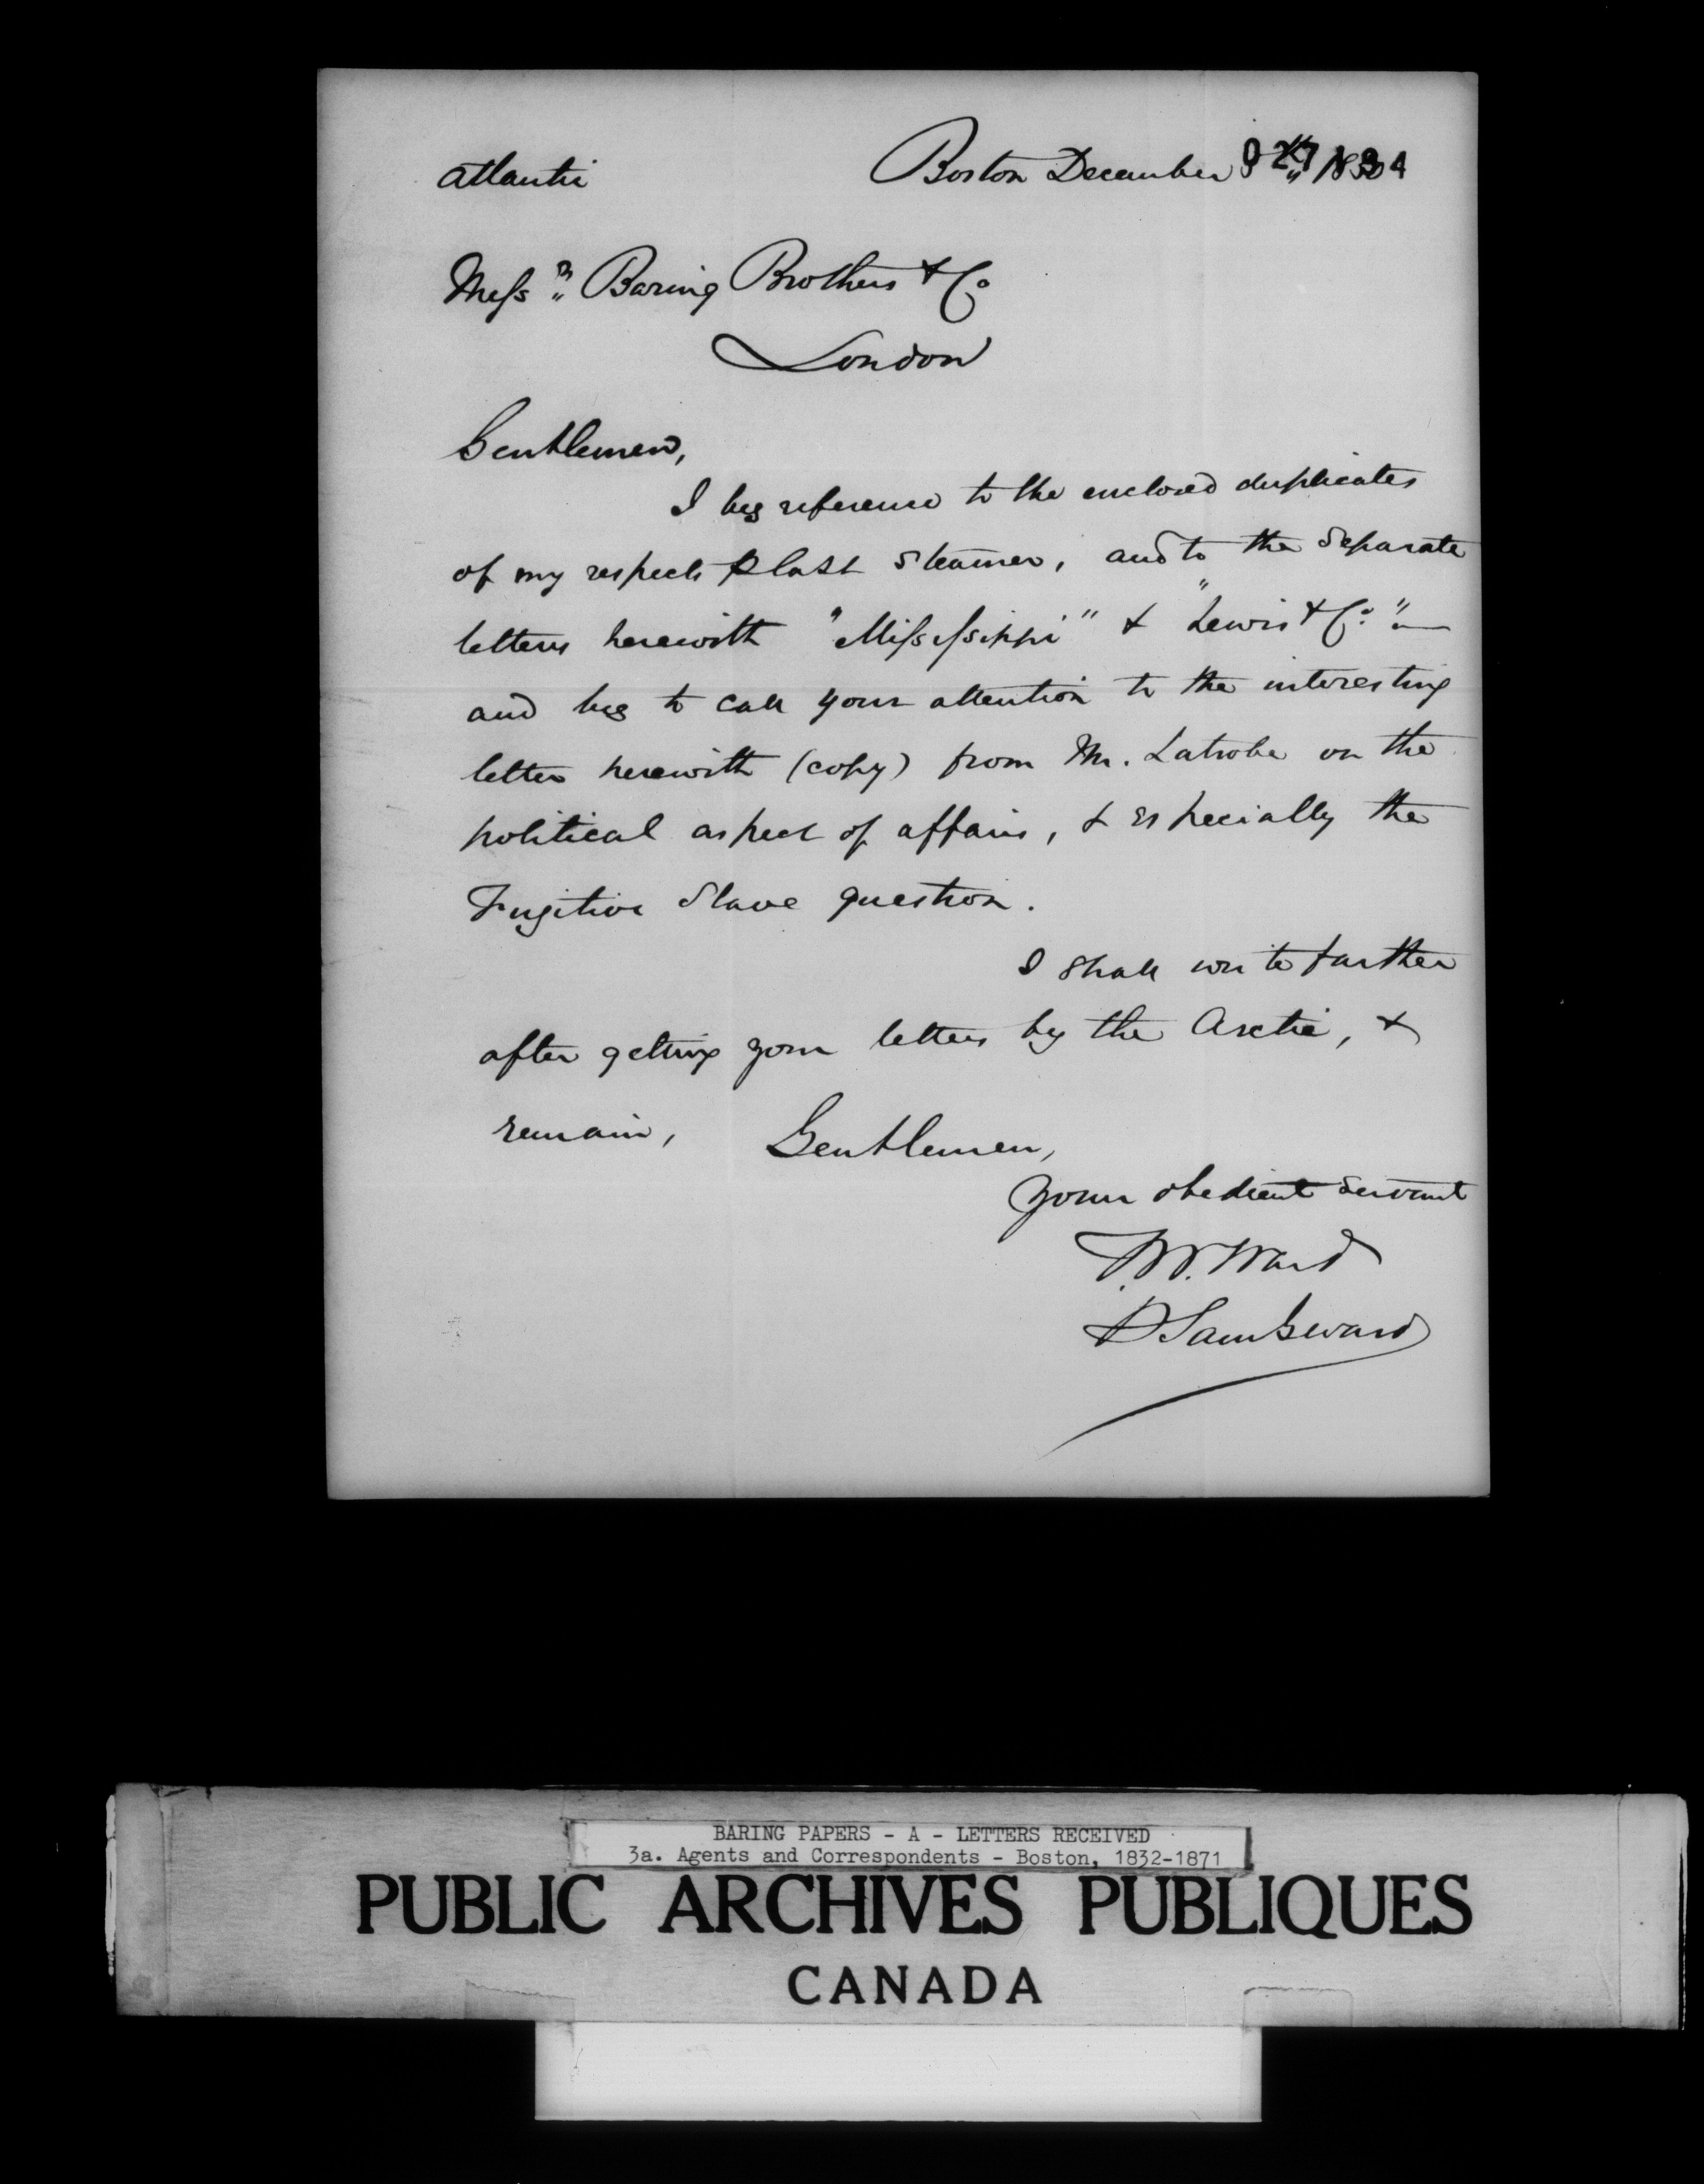 Atlantic
Boston December 1850
Messrs Baring Brothers & Co
London
Gentlemen,
I beg reference to the enclosed duplicates
of my respects ⅌ last Steamer, and to the Separate
letters herewith "Mississippi" & "Lewis & Co."—
and beg to call your attention to the interesting
letter herewith (copy) from Mr. Latrobe on the
political aspect of affairs, & especially the
Fugitive Slave question.
I shall write further
after getting your letters by the Arctic, &
remain, Gentlemen,
Your obedient Servant
T.W. Ward
⅌ Sam G Ward
BARING PAPERS - A - LETTERS RECEIVED
3a. Agents and Correspondents - Boston, 1832-1871
PUBLIC ARCHIVES PUBLIQUES
CANADA